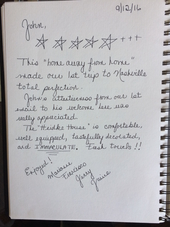 9/12/16
John,
☆ ☆ ☆ ☆ ☆ +++
This "home away from home"
made our 1st trip to Nashville
total perfection
John's attentiveness from our 1st
email to his welcome here was
very appreciated.
The "Reidke House" is comfortable,
well equipped, tastefully decorated,
and IMMACULATE. Fresh towels!!
Enjoyed!
Jerry